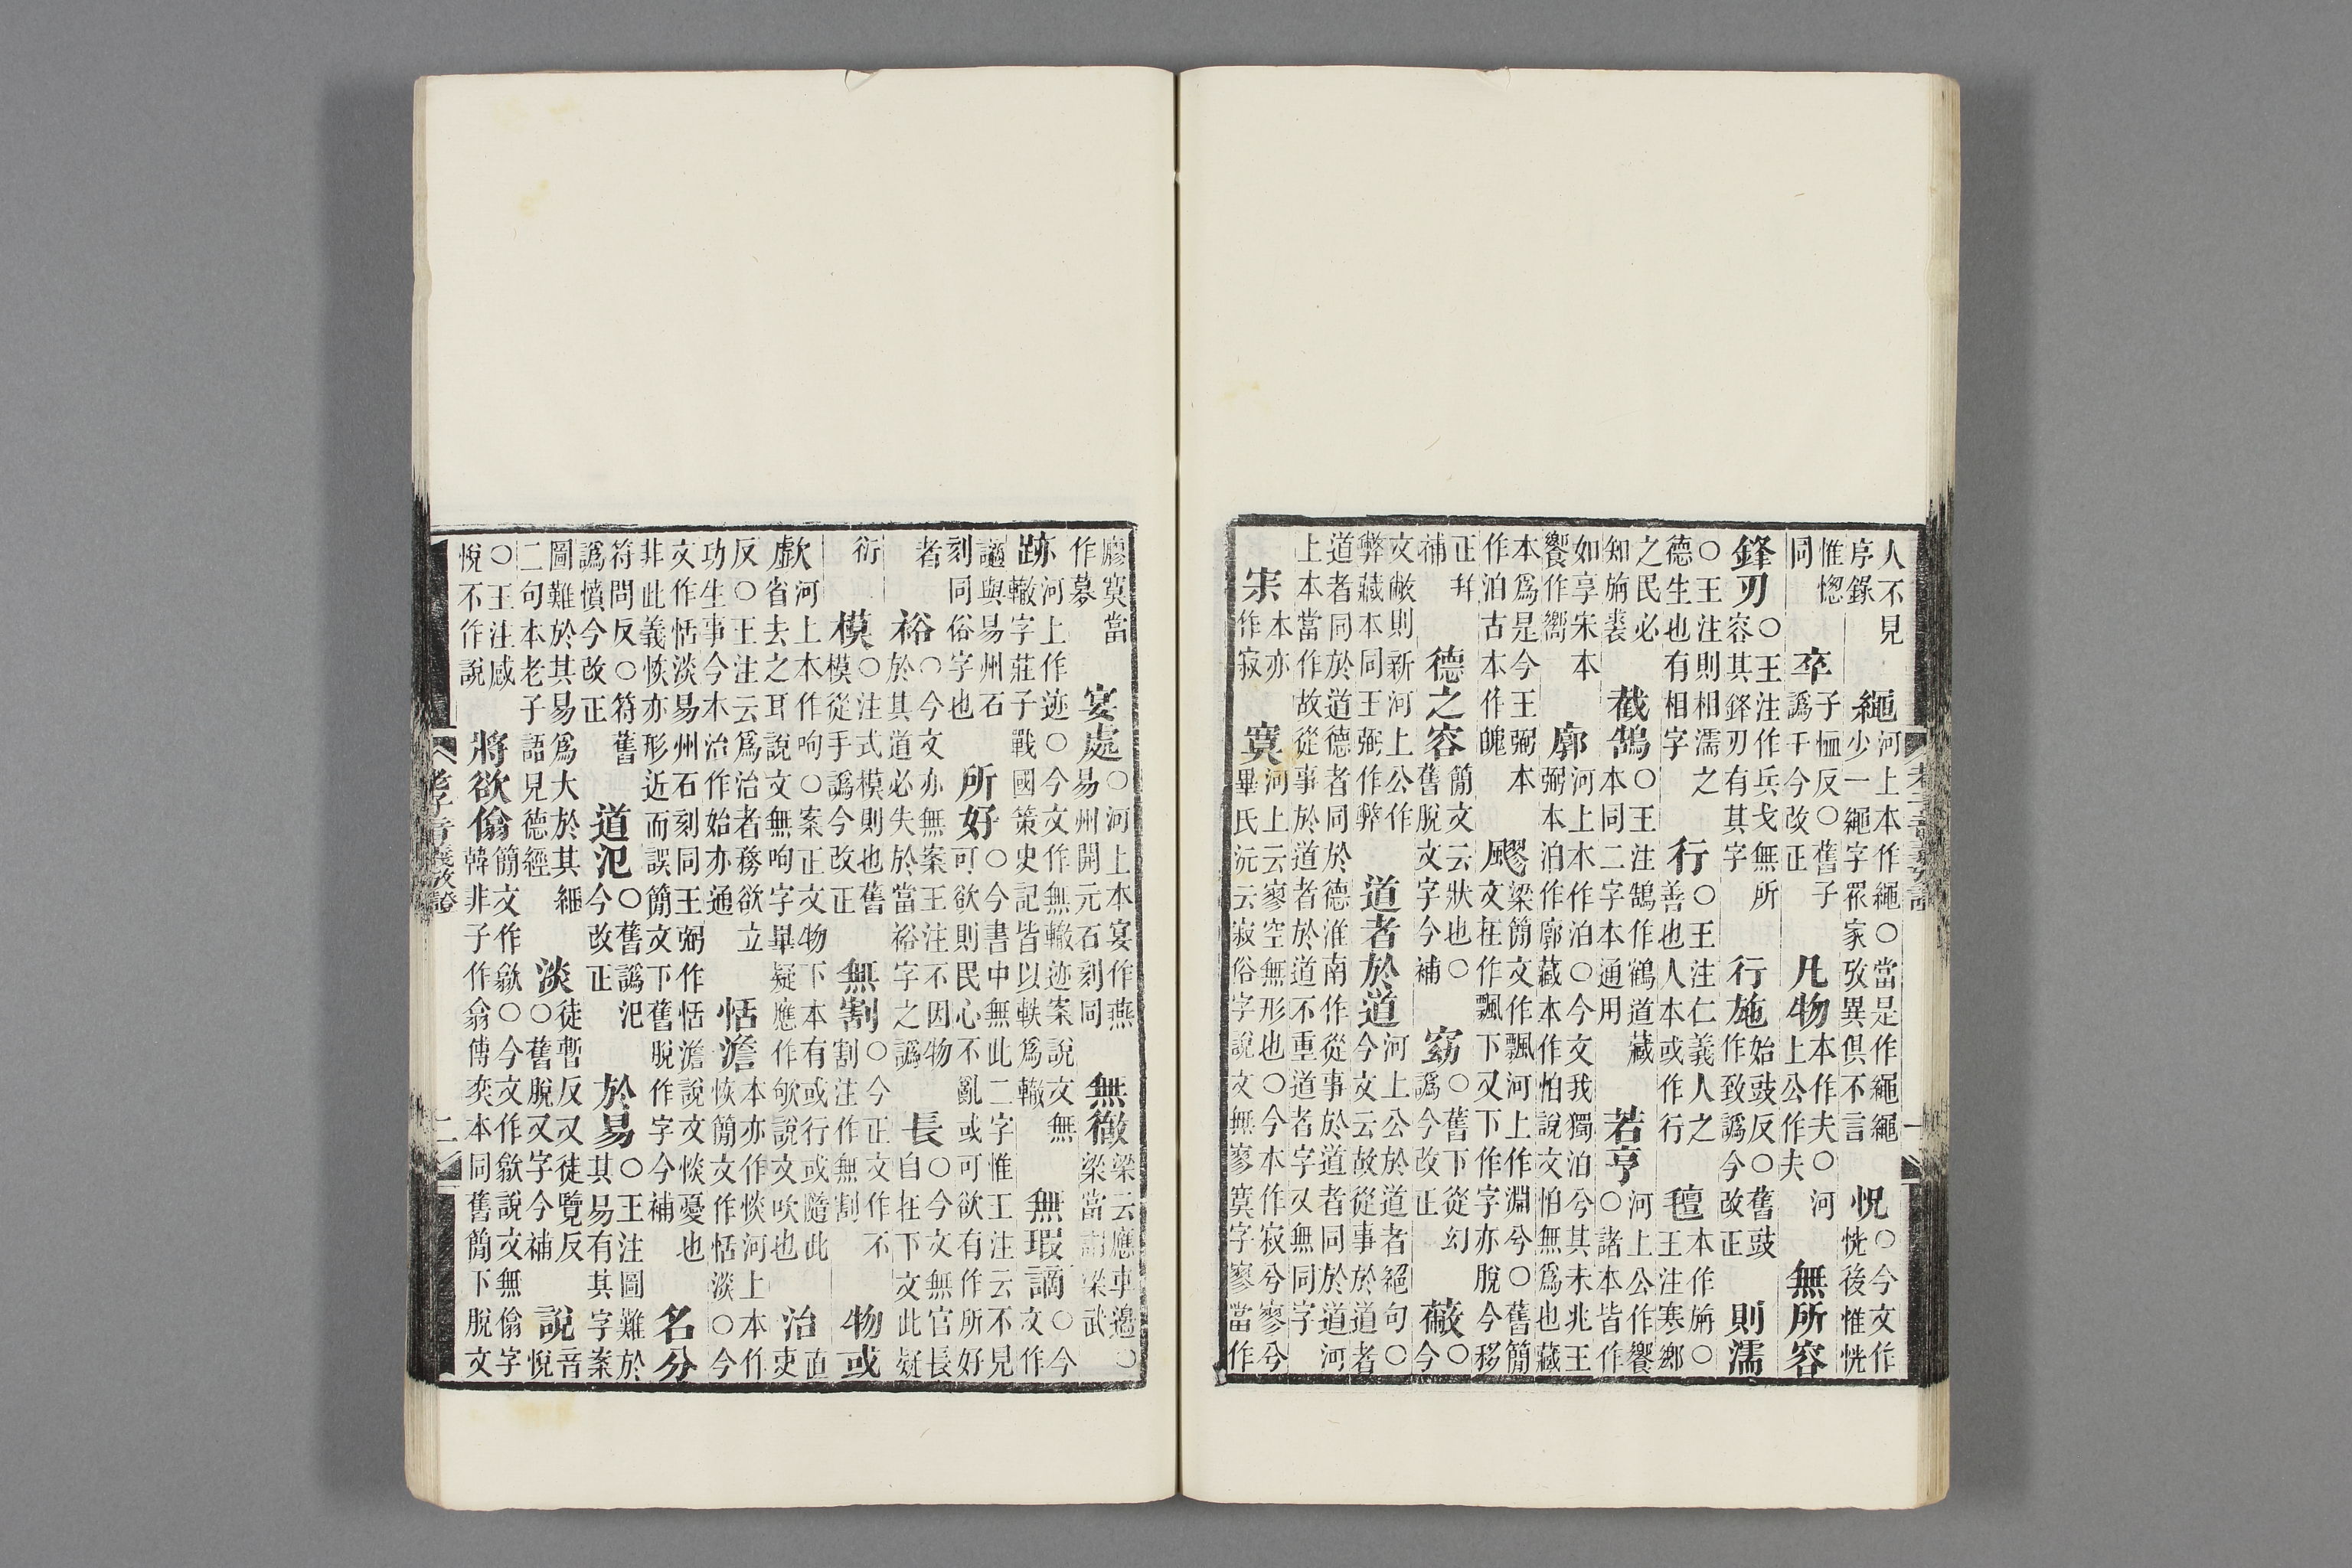 人不見序錄 繩 河上本作繩○當是作繩繩少一繩字眾家攷異俱不言 怳 ○今文作恍後惟恍
惟惚同 卒 子恤反○舊子譌干今改正 凡物 本作夫○河上公作夫 無所容
鋒刃 ○王注作兵戈無所容其鋒刃有其字 行施 始豉反○舊豉作致譌今改正 則濡
○王注則相濡之德生也有相字 行 ○王注仁義人之善也人本或作行 氊 本作旃○王注寒鄉
之民必知旃裘 截鵠 ○王注鵠作鶴道藏本同二字本通用 若享 河上公作饗○諸本皆作
如享宋本饗作嚮 廓 河上本作泊○今文我獨泊兮其未兆王弼本泊作廓藏本作怕說文怕無爲也藏
本爲是今王弼本作泊古本作魄 飂 梁簡文作飄河上作淵兮○舊簡文在作飄下又下作字亦脫今移
正幷補 德之容 簡文云狀也○舊脫文字今補 窈 ○舊下從幻譌今改正 蔽 ○今
文敝則新河上公作弊藏本同王弼作弊 道者於道 河上公於道者絕句○今文云故從事於道者
道者同於道德者同於德淮南作從事於道者同於道河上本當作故從事於道者於道不重道者字又無同字
宋 本亦作寂 寞 河上云寥空無形也○今本作寂兮寥兮畢氏沅云寂俗字說文無寥寞字寥當作
老子音義攷證
廫寞當作募 宴處 ○河上本宴作燕易州開元石刻同 無徹 梁云應車邊○梁當謂梁武
跡 河上作迹○今文作無轍迹案說文無轍字莊子戰國策史記皆以軼爲轍 無瑕謫 ○今文作
讁與易州石刻同俗字也 所好 ○今書中無此二字惟王注云不見可欲則民心不亂或可欲有作所好
者 裕 ○今文亦無案王注不因物於其道必失於當裕字之譌 長 ○今文無官長自在下文此疑
衍 模 ○注式模則也舊模從手譌今改正 無割 ○今正文作不割注作無割 物或
歔 河上本作呴○案正文物下本有或行或隨此省去之耳說文無呴字畢疑應作欨說文吹也 治 直吏
反○王注云爲治者務欲立功生事今本治作始亦通 恬澹 本亦作惔河上本作恢簡文作恬淡○今
文作恬淡易州石刻同王弼作恬澹說文惔憂也非此義恢亦形近而誤簡文下舊脫作字今補 名分
符問反○符舊譌憤今改正 道氾 ○舊譌汜今改正 於易 ○王注圖難於其易有其字案
圖難於其易爲大於其細二句本老子語見德經 淡 徒暫反又徒覽反○舊脫又字今補 說 音悅
○王注感悅不作說 將欲偷 簡文作歙○今文作歙說文無偷字韓非子作翕傅奕本同舊簡下脫文
老子音義攷證 二